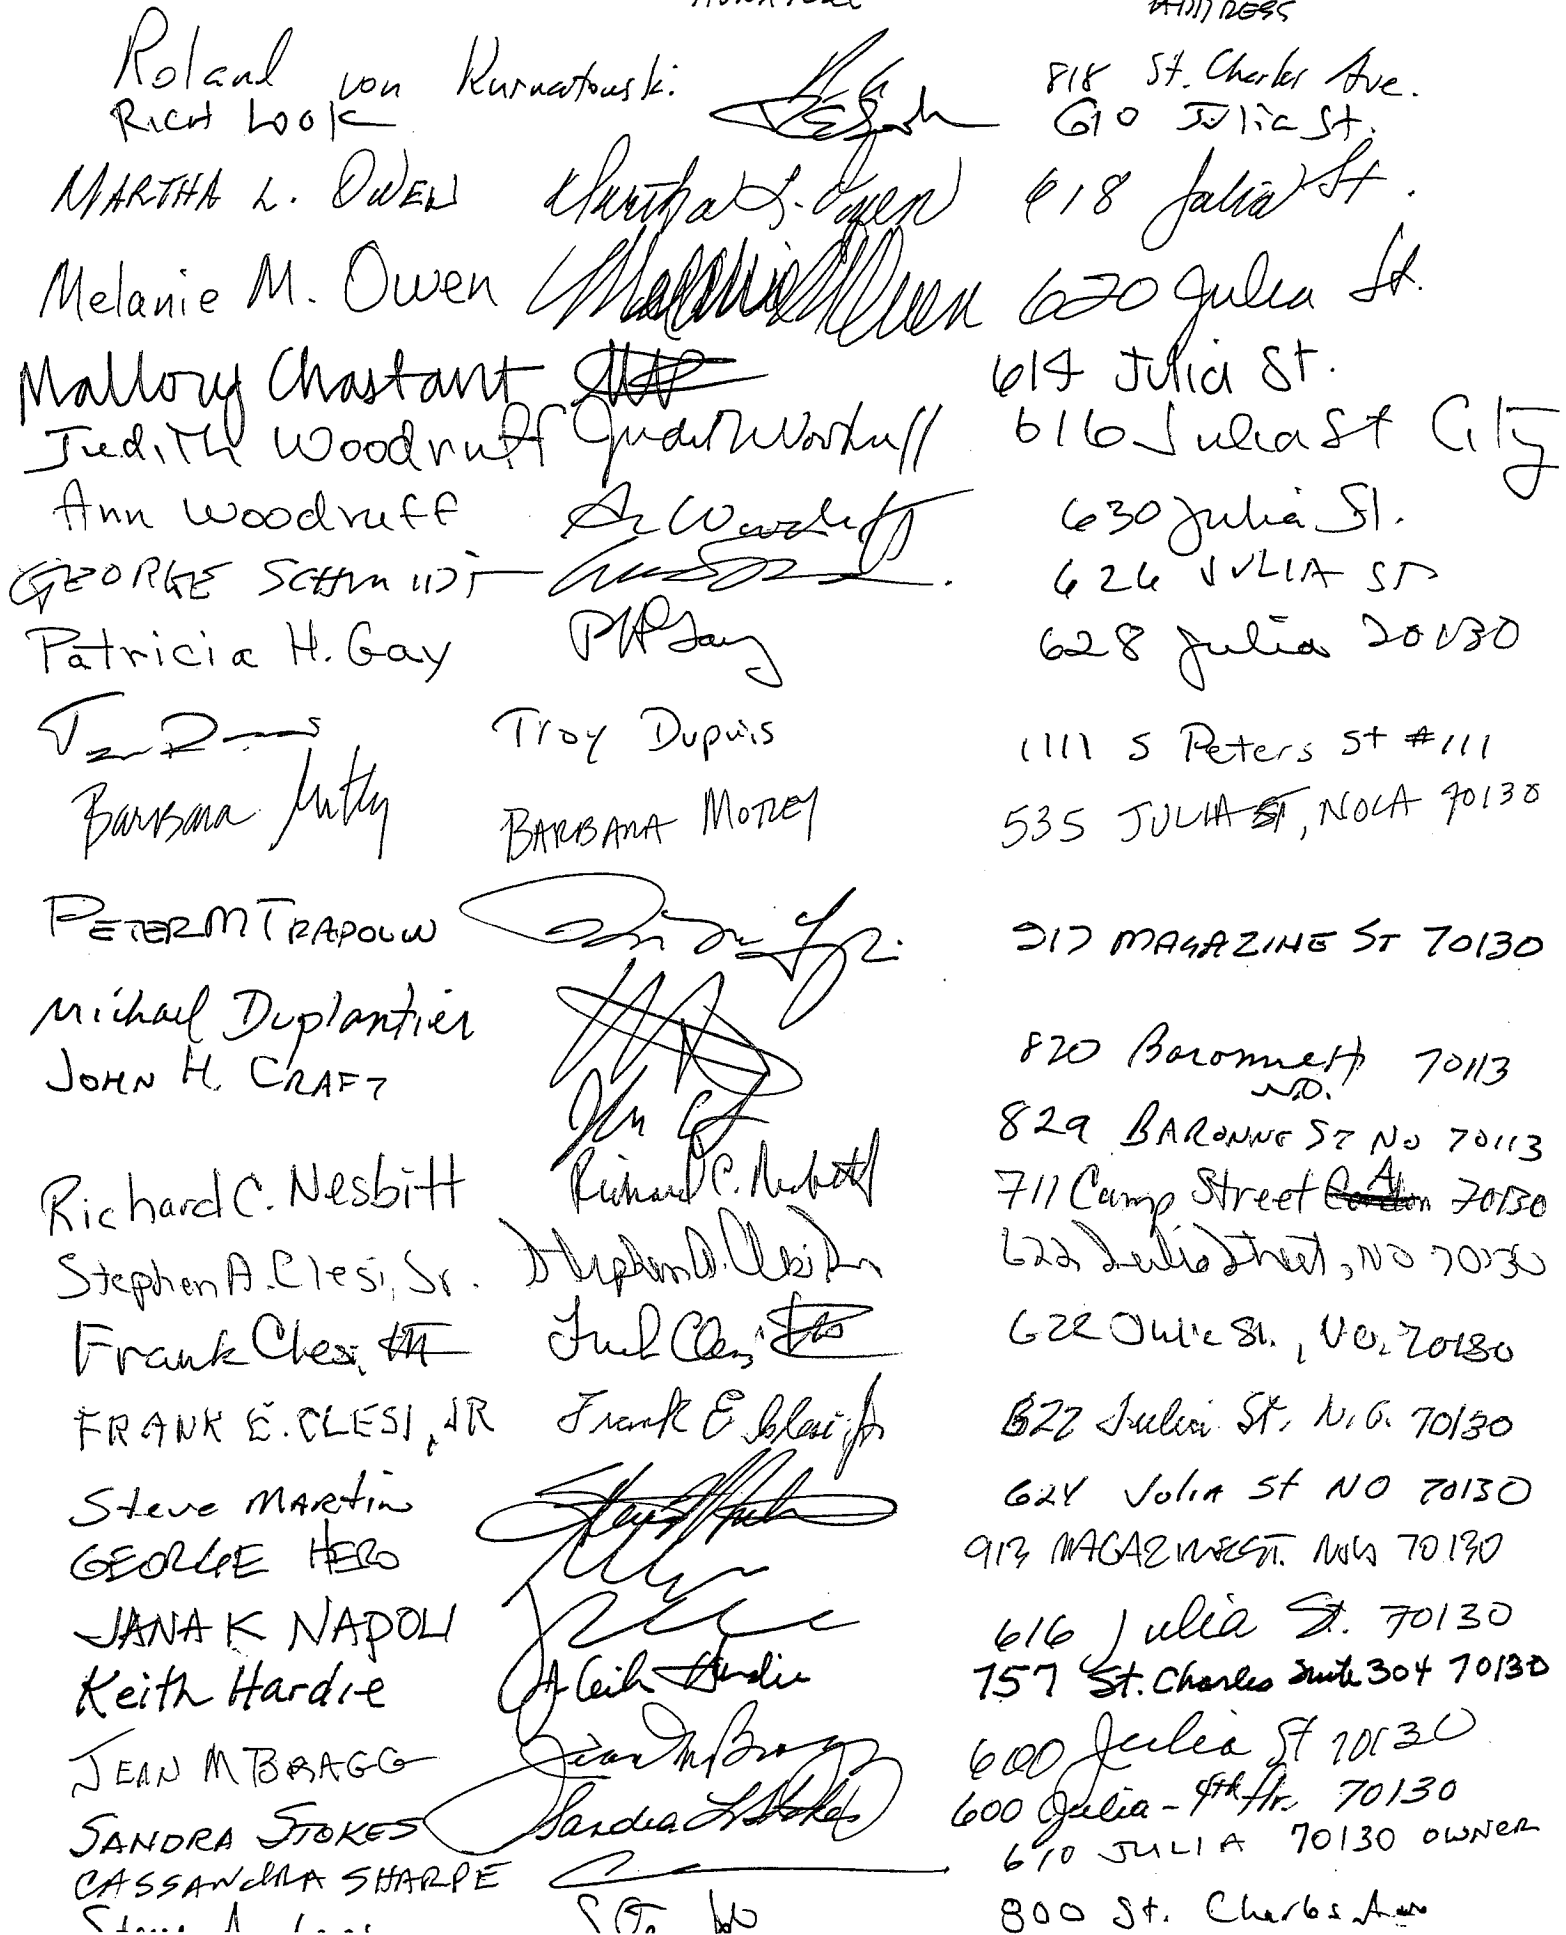 ADDRESS
Roland von Kurnatowski 818 St. Charles Ave.
RICH LOOK 610 Julia St.
MARTHA L. OWEN Martha L. Owen 618 Julia St.
Melanie M. Owen Melanie M Owen 620 Julia St.
Mallory Chastant 614 Julia St.
Judith Woodruff Judith Woodruff 616 Julia St City
Ann Woodruff An Woodruff 630 Julia St.
GEORGE SCHMIDT 626 JULIA ST
Patricia H. Gay PH Gay 628 Julia 70130
Troy Dupuis 1111 S Peters St #111
Barbara Motley BARBARA MOTLEY 535 JULIA ST, NOLA 70130
PETER M TRAPOLIN 917 MAGAZINE ST 70130
Michael Duplantier 820 Baronne St 70113
N.O.
JOHN H. CRAFT 829 BARONNE ST NO 70113
Richard C. Nesbitt Richard C. Nesbitt 711 Camp Street 70130
Stephen A. Clesi, Sr. Stephen A. Clesi Sr 622 Julia Street, NO 70130
Frank Clesi, III Frank Clesi III 622 Julia St., NO, 70130
FRANK E. CLESI, JR Frank E Clesi Jr 622 Julia St. N.O. 70130
Steve Martin Steve Martin 624 Julia St NO 70130
GEORGE HERO 913 MAGAZINE ST. Nola 70130
JANA K NAPOLI 616 Julia St. 70130
Keith Hardie A Keith Hardie 757 St. Charles Suite 304 70130
JEAN M BRAGG Jean M Bragg 600 Julia St 70130
SANDRA STOKES Sandra L Stokes 600 Julia - 4th flr. 70130
CASSANDRA SHARPE 610 JULIA 70130 OWNER
800 St. Charles Ave